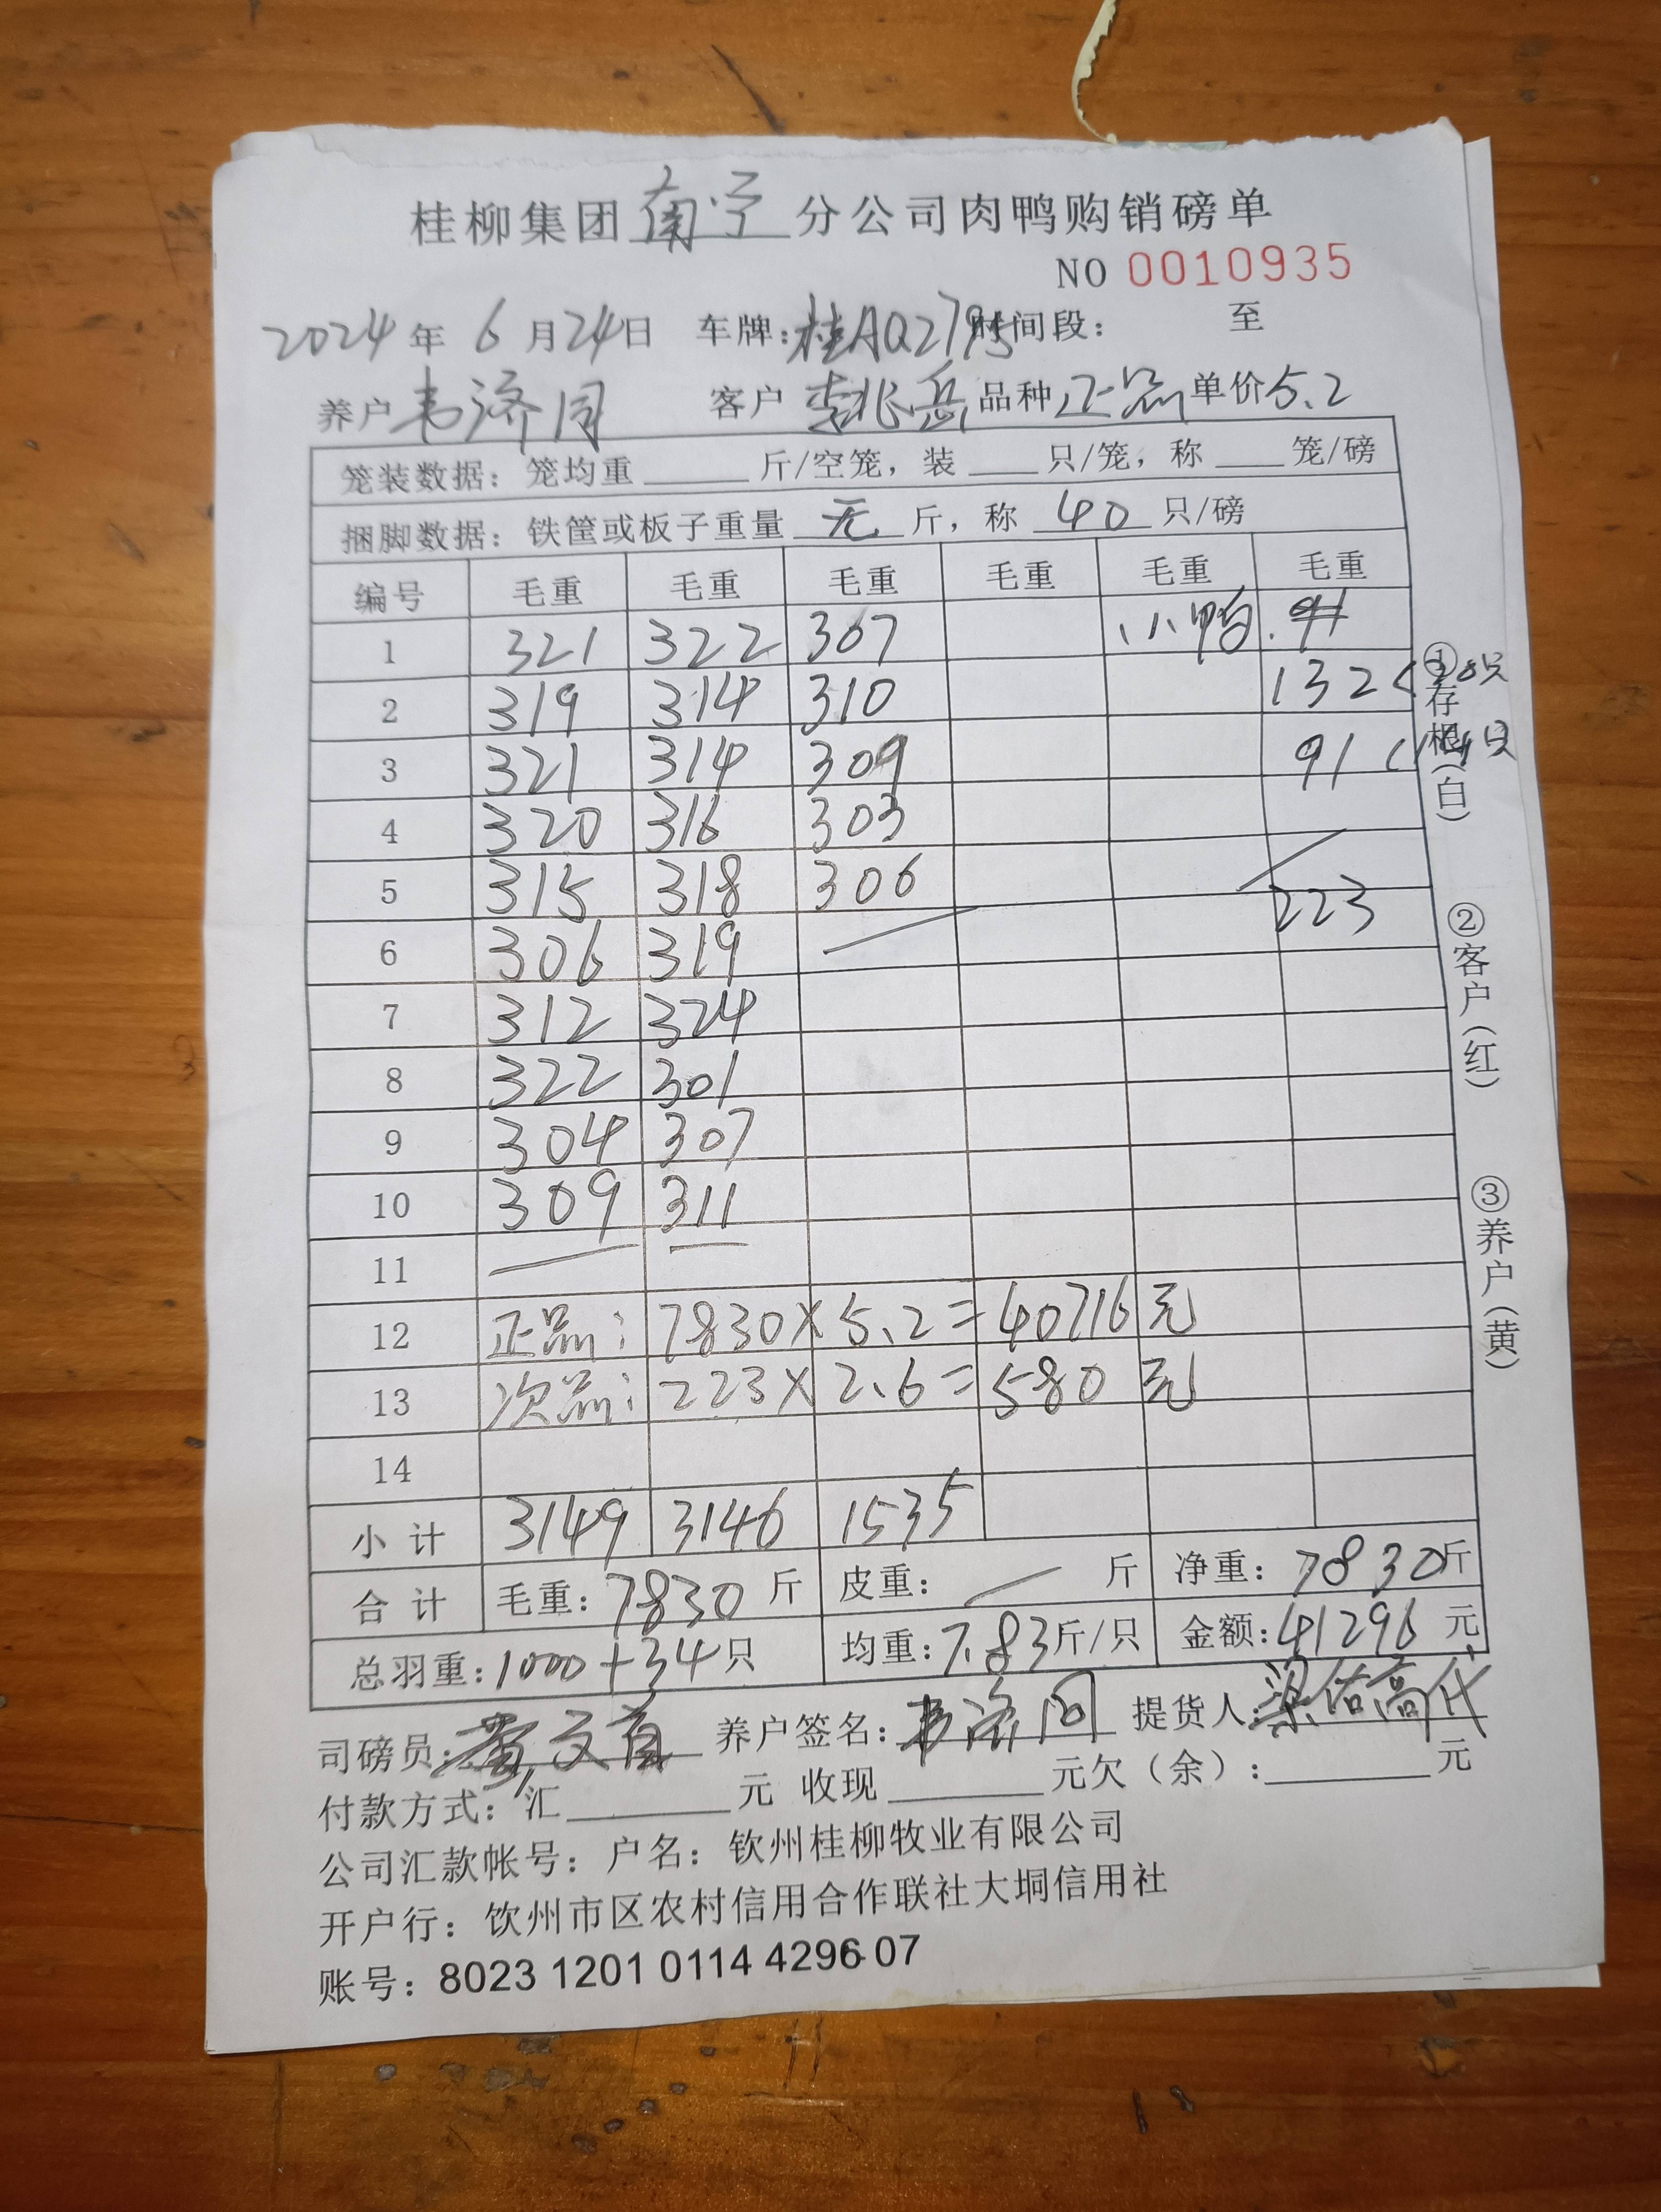 桂柳集团南宁分公司肉鸭购销磅单
NO 0010935
2024年6月24日 车牌:桂AQ2795时间段: 至
养户韦济同 客户李兆岳品种正品单价5.2
笼装数据: 笼均重______斤/空笼, 装____只/笼, 称____笼/磅
捆脚数据: 铁筐或板子重量 无 斤, 称 40 只/磅
编号 毛重 毛重 毛重 毛重 毛重 毛重
1 321 322 307 小鸭 91
2 319 314 310 132 (20只
3 321 314 309 91 (14只
4 320 316 303
5 315 318 306 223
6 306 319
7 312 324
8 322 301
9 304 307
10 309 311
11
12 正品: 7830×5.2=40716元
13 次品: 223×2.6=580元
14
小计 3149 3146 1535
合计 毛重: 7830斤 皮重: — 斤 净重: 7830斤
总羽重: 1000+34只 均重: 7.83斤/只 金额: 41296元
司磅员: 黄文 养户签名: 韦济同 提货人: 梁佑高代
付款方式: 汇______元 收现______元欠(余):______元
公司汇款帐号: 户名: 钦州桂柳牧业有限公司
开户行: 饮州市区农村信用合作联社大垌信用社
账号: 8023 1201 0114 4296 07
①存根(白)
②客户(红)
③养户(黄)